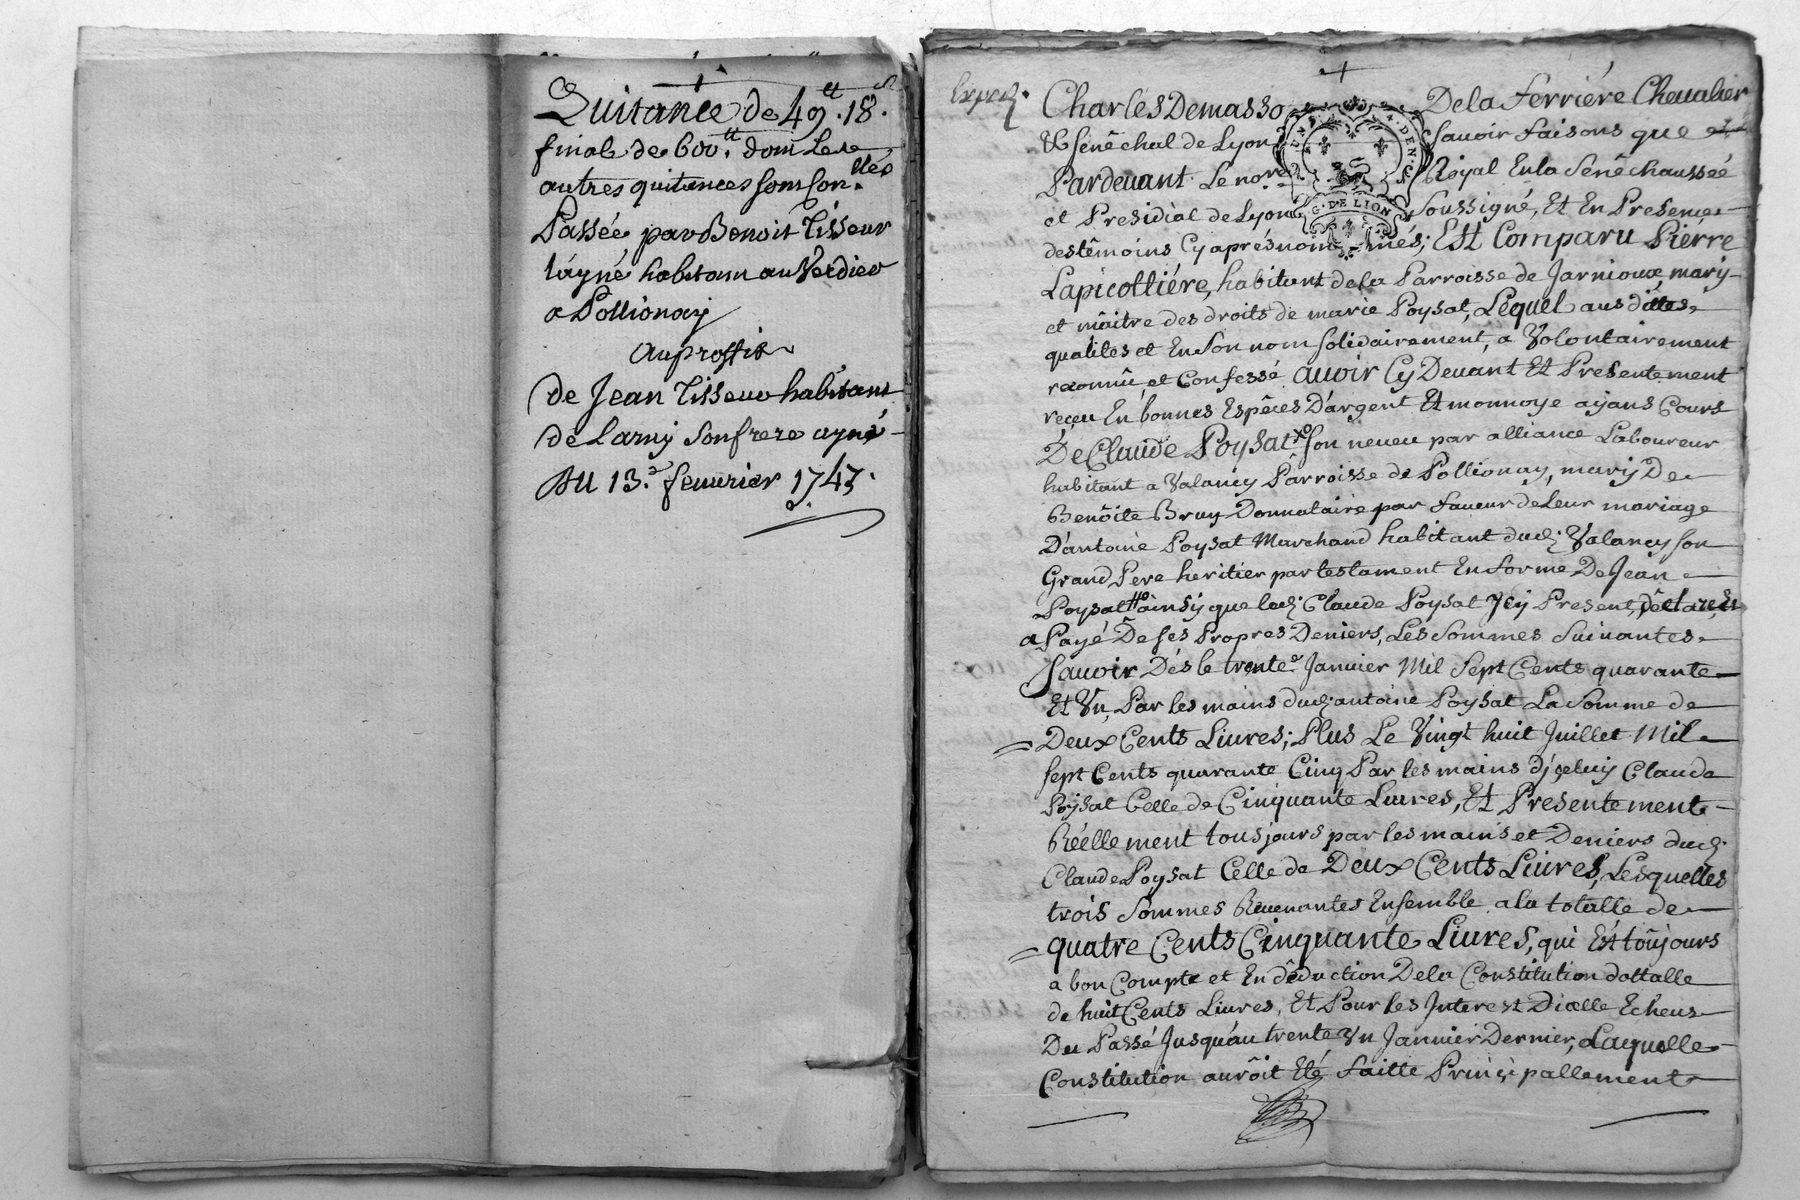 Quitance de 49.tt 18.s
finale de 600.tt dom Les
autres quitances som Con.llés
Passée par Benoit Tisseur
l'ayné habitam au Verdier
a Pollionay
Au proffit
de Jean Tisseur habitant
de Larny son frere ayné
Du 13.e feuurier 1747.
Exped.
Charles De masso De la ferriére Cheualier
& senêchal de Lyon sauoir faisons que
Pardeuant Le no.re Royal En la Senêchaussée
et Presidial de Lyon soussigné, Et En Presence
des têmoins Cy aprés nommés; Est Comparu Pierre
Lapicottiére, habitant de la Parroisse de Jarnioux, mary
et mâitre des droits de marie Poysat, Lequel aus dittes
qualités et En Son nom solidairement, a Volontairement
reconnû et Confessé auoir Cy Deuant Et Presentement
reçeu En bonnes Espêces D'argent Et monnoye ayans Cours
De Claude Poysat son neueu par alliance Laboureur
habitant a Valancy Pârroisse de Pollionay, mary De
Benôite Bruy Donnataire par faueur de Leur mariage
D'antoine Poysat Marchand habitant dud. Valancy son
Grand Pere heritier par testament En forme De Jean
Poysat ainsy que led. Claude Poysat Jcy Present, dêclare, Et
a Payé De ses Propres Deniers, Les Sommes Suiuantes
Sauoir Dés le trente Januier Mil Sept Cents quarante
Et Vn, Par les mains dud. antoine Poysat La Somme de
Deux Cents Liures; Plus Le Vingt huit Juillet Mil
sept Cents quarante Cinq Par les mains d'jçeluy Claude
Poysat Celle de Cinquante Liures, Et Presentement
Réellement tousjours par les mains et Deniers dud.
Claude Poysat Celle de Deux Cents Liures, Lesquelles
trois Sommes Reuenantes Ensemble a la totalle de
quatre Cents Cinquante Liures, qui Est toûjours
a bon Compte et En dêduction De la Constitution dottalle
de huit Cents Liures, Et Pour les Interest Dicelle Echeus
Du Passé Jusqu'au trente Vn Januier Dernier, Laquelle
Constitution aurôit Eté faitte Prinçipallement
G. DE LION